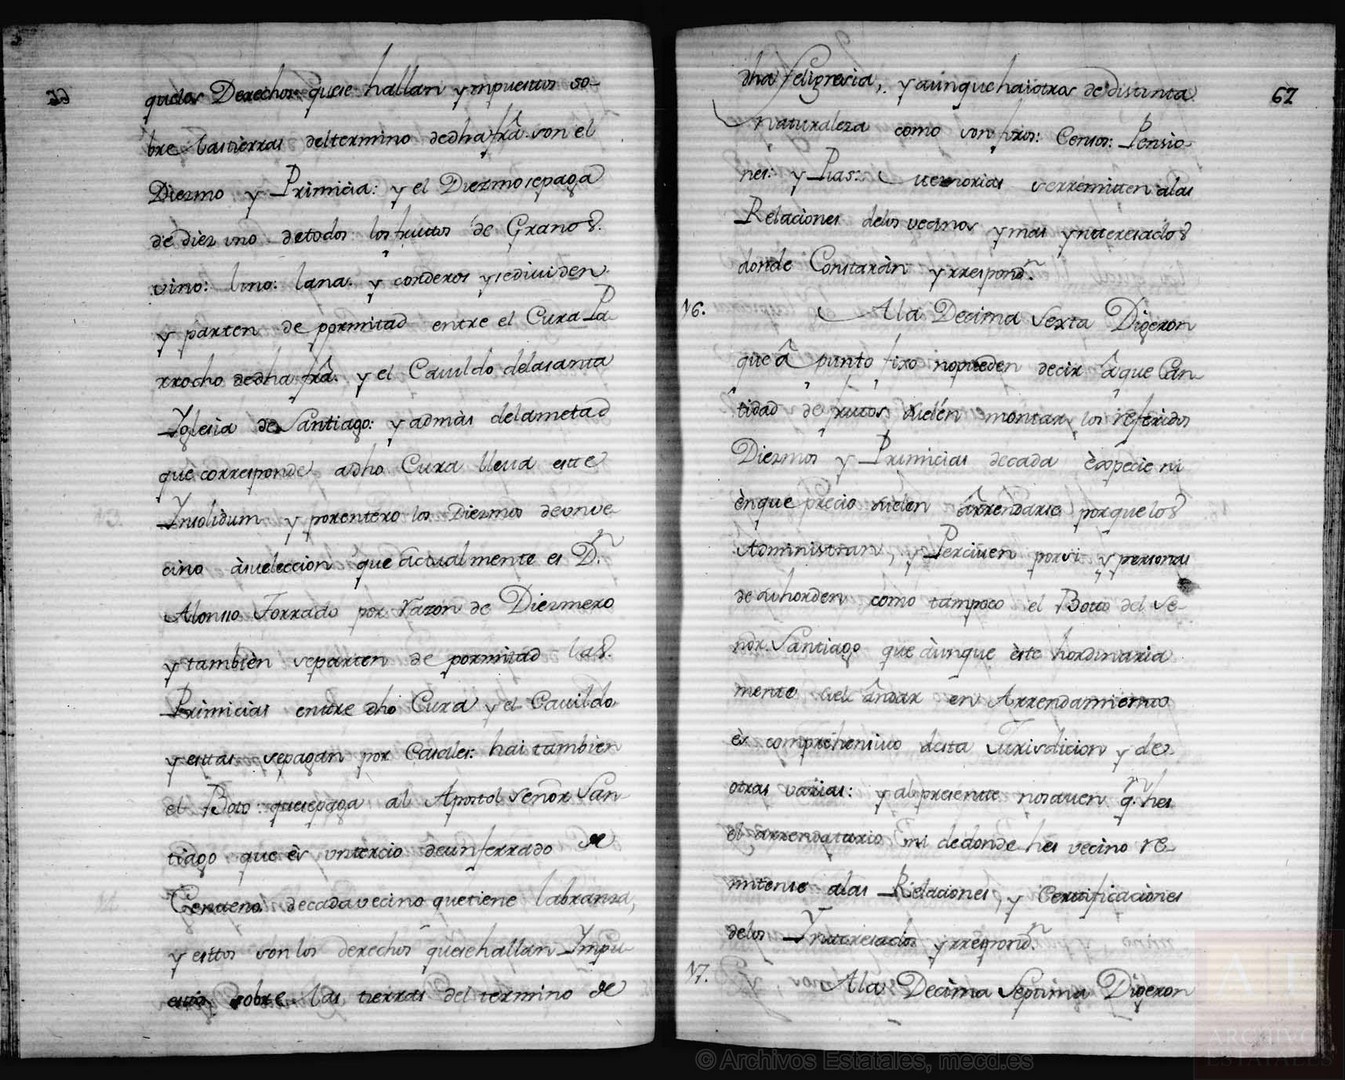 que los Derechos que se hallan ympuestos so-
bre las tierras del termino de dha frâ. son el
Diezmo y Primicia: y el Diezmo se paga
de diez uno de todos los frutos de Granos.
vino: lino: lana: y corderos y se diuiden
y parten de por mitad entre el Cura Pa
rrocho de dha frâ. y el Cauildo de la santa
Yglesia de Santiago: y admàs de la metad
que corresponde a dho Cura lleua este
Ynsolidum y por entero los Diezmos de un ve
cino à su eleccion que actualmente es Dn.
Alonso Torrado por razon de Diezmero
y tambièn se parten de por mitad las
Primicias entre dho Cura y el Cauildo
y estas se pagan por Casales: hai tambien
el Boto: que se paga al Apostol Señor San
tiago que ès un tercio de un ferrado de
Zenteno de cada vecino que tiene labranza,
y estos son los derechos que se hallan Ympu
estos sobre las tierras del termino de
62
dha feligresia, y aùnque hai otros de distinta
naturaleza como son foros: Censos: Pensio-
nes: y Pias: memorias se rremiten a las
Relaciones de los vecinos y mas ynteresados
donde Constaràn y rrespondn.
16. A la Decima Sexta Digeron
que â punto fixo no pueden decir â que Can
tidad de frutos suelen montar los referidos
Diezmos y Primicias de cada èspecie ni
èn que precio suelen ârrendarse porque los
Administran, y Perciuen por si y personas
de su horden como tampoco el Boto del Se-
ñor Santiago que àunque èste hordinaria
mente suel ândar en Arrendamiento
ès comprehensiuo desta Jurisdicion y de
otras varias: y al presente no sauen qn. hes
el arrendatario ni de donde hes vecino re-
mitense a las Relaciones y Certificaciones
de los Ynteresados y rrespondn.
17. A la Decima Septima Digeron
© Archivos Estatales, mecd.es
ARCHIVOS
ESTATALES